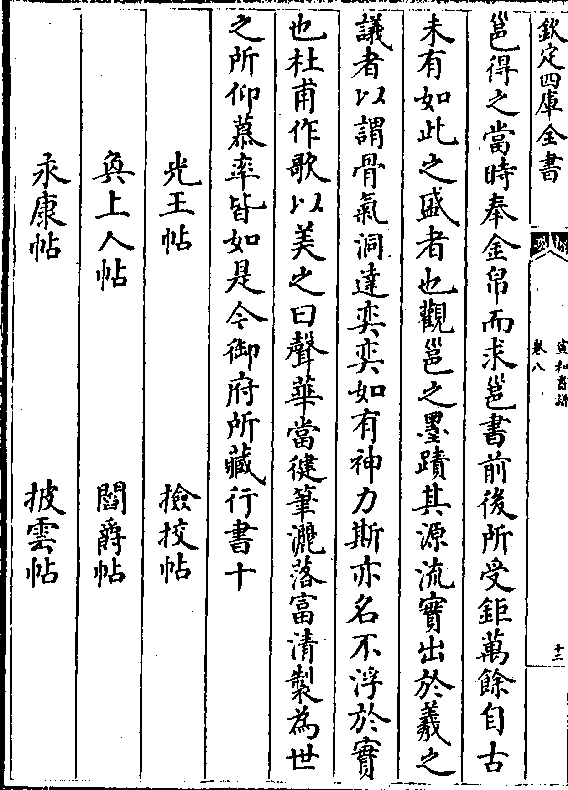 欽定四庫全書
宣和書譜
卷八
十二
邕得之當時奉金帛而求邕書前後所受鉅萬餘自古
未有如此之盛者也觀邕之墨蹟其源流實出於羲之
議者以謂骨氣洞達奕奕如有神力斯亦名不浮於實
也杜甫作歌以美之曰聲華當健筆灑落富清製為世
之所仰慕率皆如是今御府所藏行書十
光王帖 撿挍帖
奐上人帖 閻爵帖
永康帖 披雲帖